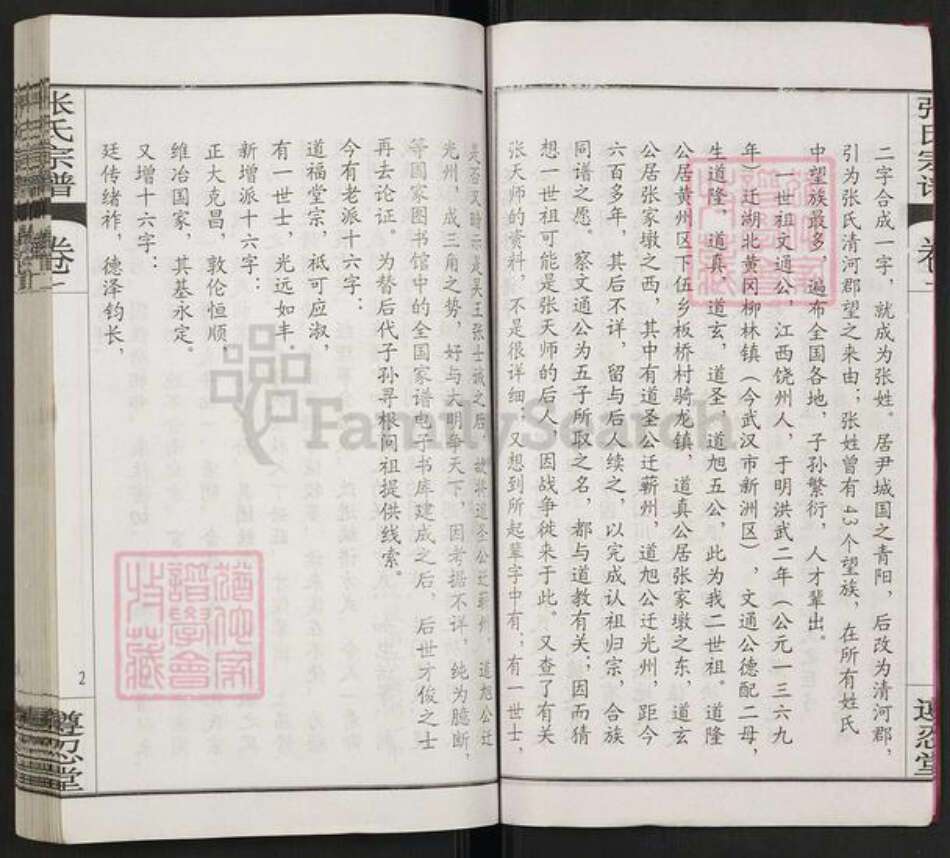 张氏宗谱
卷一
遵忍堂
二字合成一字，就成为张姓。居尹城国之青阳，后改为清河郡，
引为张氏清河郡望之来由；张姓曾有43个望族，在所有姓氏
中望族最多，遍布全国各地，子孙繁衍，人才辈出。
一世祖文通公，江西饶州人，于明洪武二年（公元一三六九
年）迁湖北黄冈柳林镇（今武汉市新洲区），文通公德配二母，
生道隆，道真，道玄，道圣，道旭五公，此为我二世祖。道隆
公居黄州区下伍乡板桥村骑龙镇，道真公居张家墩之东，道玄
公居张家墩之西，其中有道圣公迁蕲州，道旭公迁光州，距今
六百多年，其后不详，留与后人续之，以完成认祖归宗，合族
同谱之愿。察文通公为五子所取之名，都与道教有关；因而猜
想一世祖可能是张天师的后人，因战争徙来于此。又查了有关
张天师的资料，不是很详细；又想到所起辈字中有；有一世士，
是否又暗示是吴王张士诚之后，故将道圣公迁蕲州，道旭公迁
光州，成三角之势，好与大明争天下，因考据不详，纯为臆断，
等国家图书馆中的全国家谱电子书库建成之后，后世才俊之士
再去论证。为替后代子孙寻根问祖提供线索。
今有老派十六字：
道福堂宗，祗可应淑，
有一世士，光远如丰。
新增派十六字：
正大克昌，敦伦恒顺，
维冶国家，其基永定。
又增十六字：
廷传绪祚，德泽钧长，
张氏宗谱
卷一
2
遵忍堂
FamilySearch